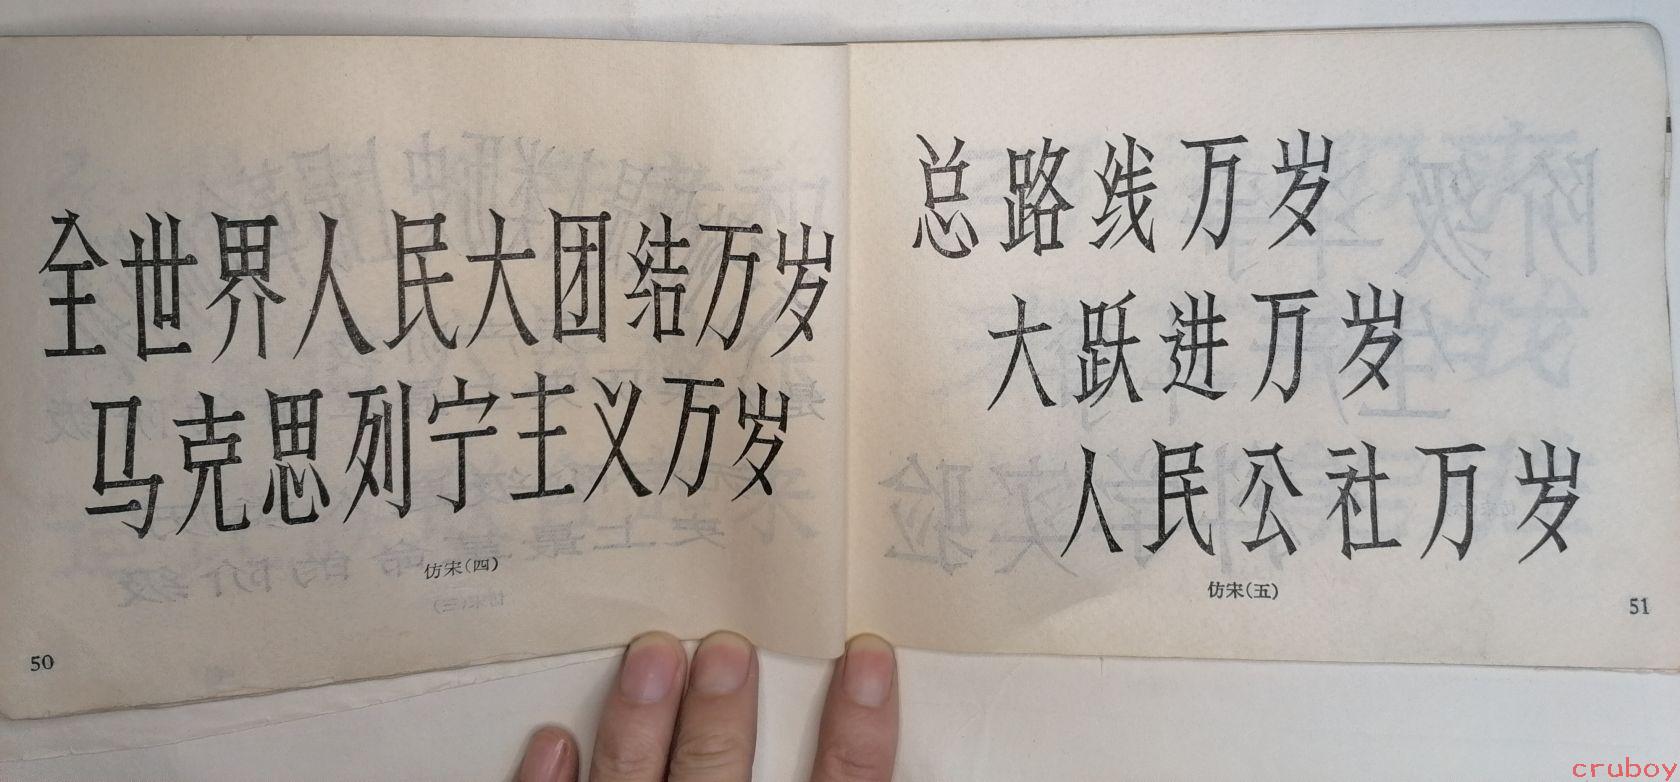 全世界人民大团结万岁
马克思列宁主义万岁
仿宋(四)
50
总路线万岁
大跃进万岁
人民公社万岁
仿宋(五)
51
cruboy